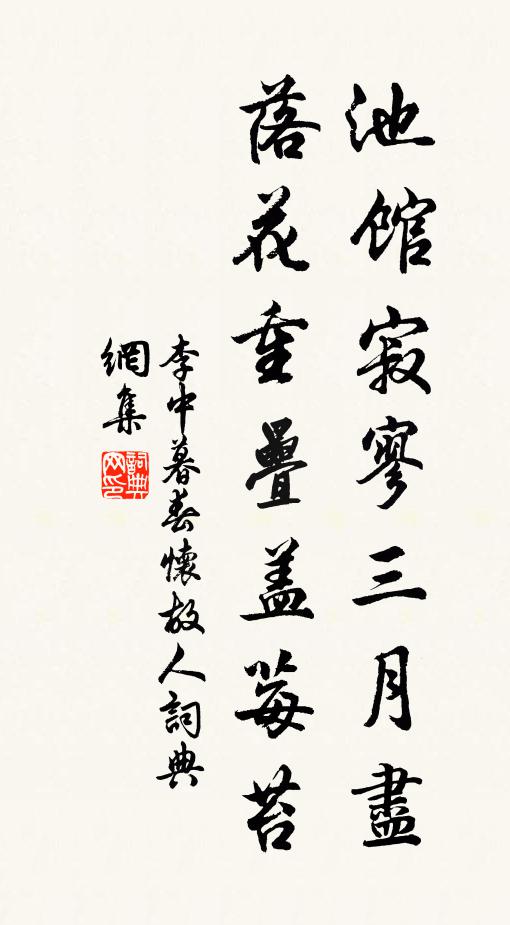 池館寂寥三月盡
落花重疊盖莓苔
李中暮春懷故人詞典
網集
詞典网印